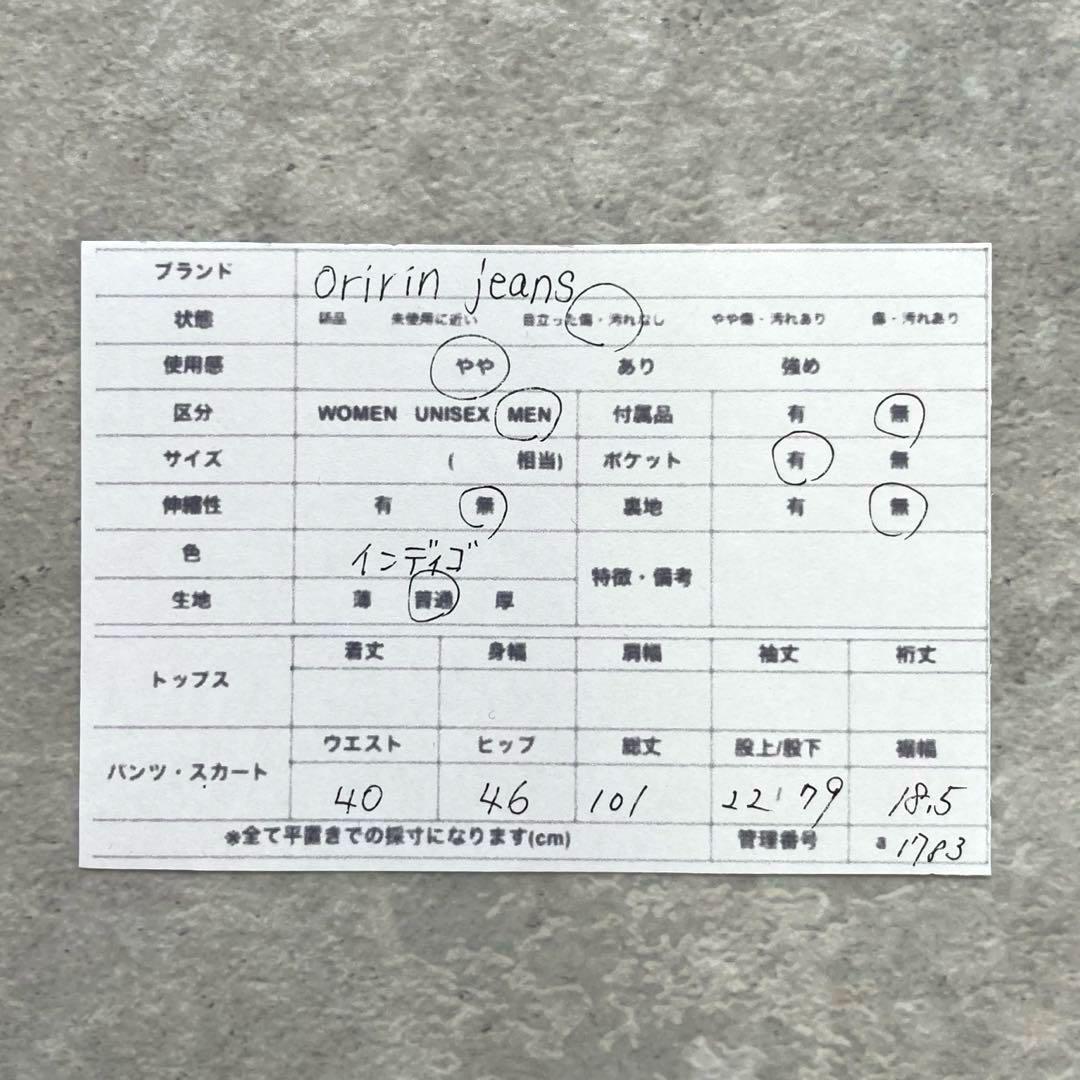 ブランド oririn jeans
状態 新品 未使用に近い 目立った傷・汚れなし やや傷・汚れあり 傷・汚れあり
使用感 やや あり 強め
区分 WOMEN UNISEX MEN 付属品 有 無
サイズ ( 相当) ポケット 有 無
伸縮性 有 無 裏地 有 無
色 インディゴ 特徴・備考
生地 薄 普通 厚
トップス 着丈 身幅 肩幅 袖丈 裄丈
パンツ・スカート ウエスト ヒップ 総丈 股上/股下 裾幅
40 46 101 22 79 18.5
※全て平置きでの採寸になります(cm) 管理番号 a 1783